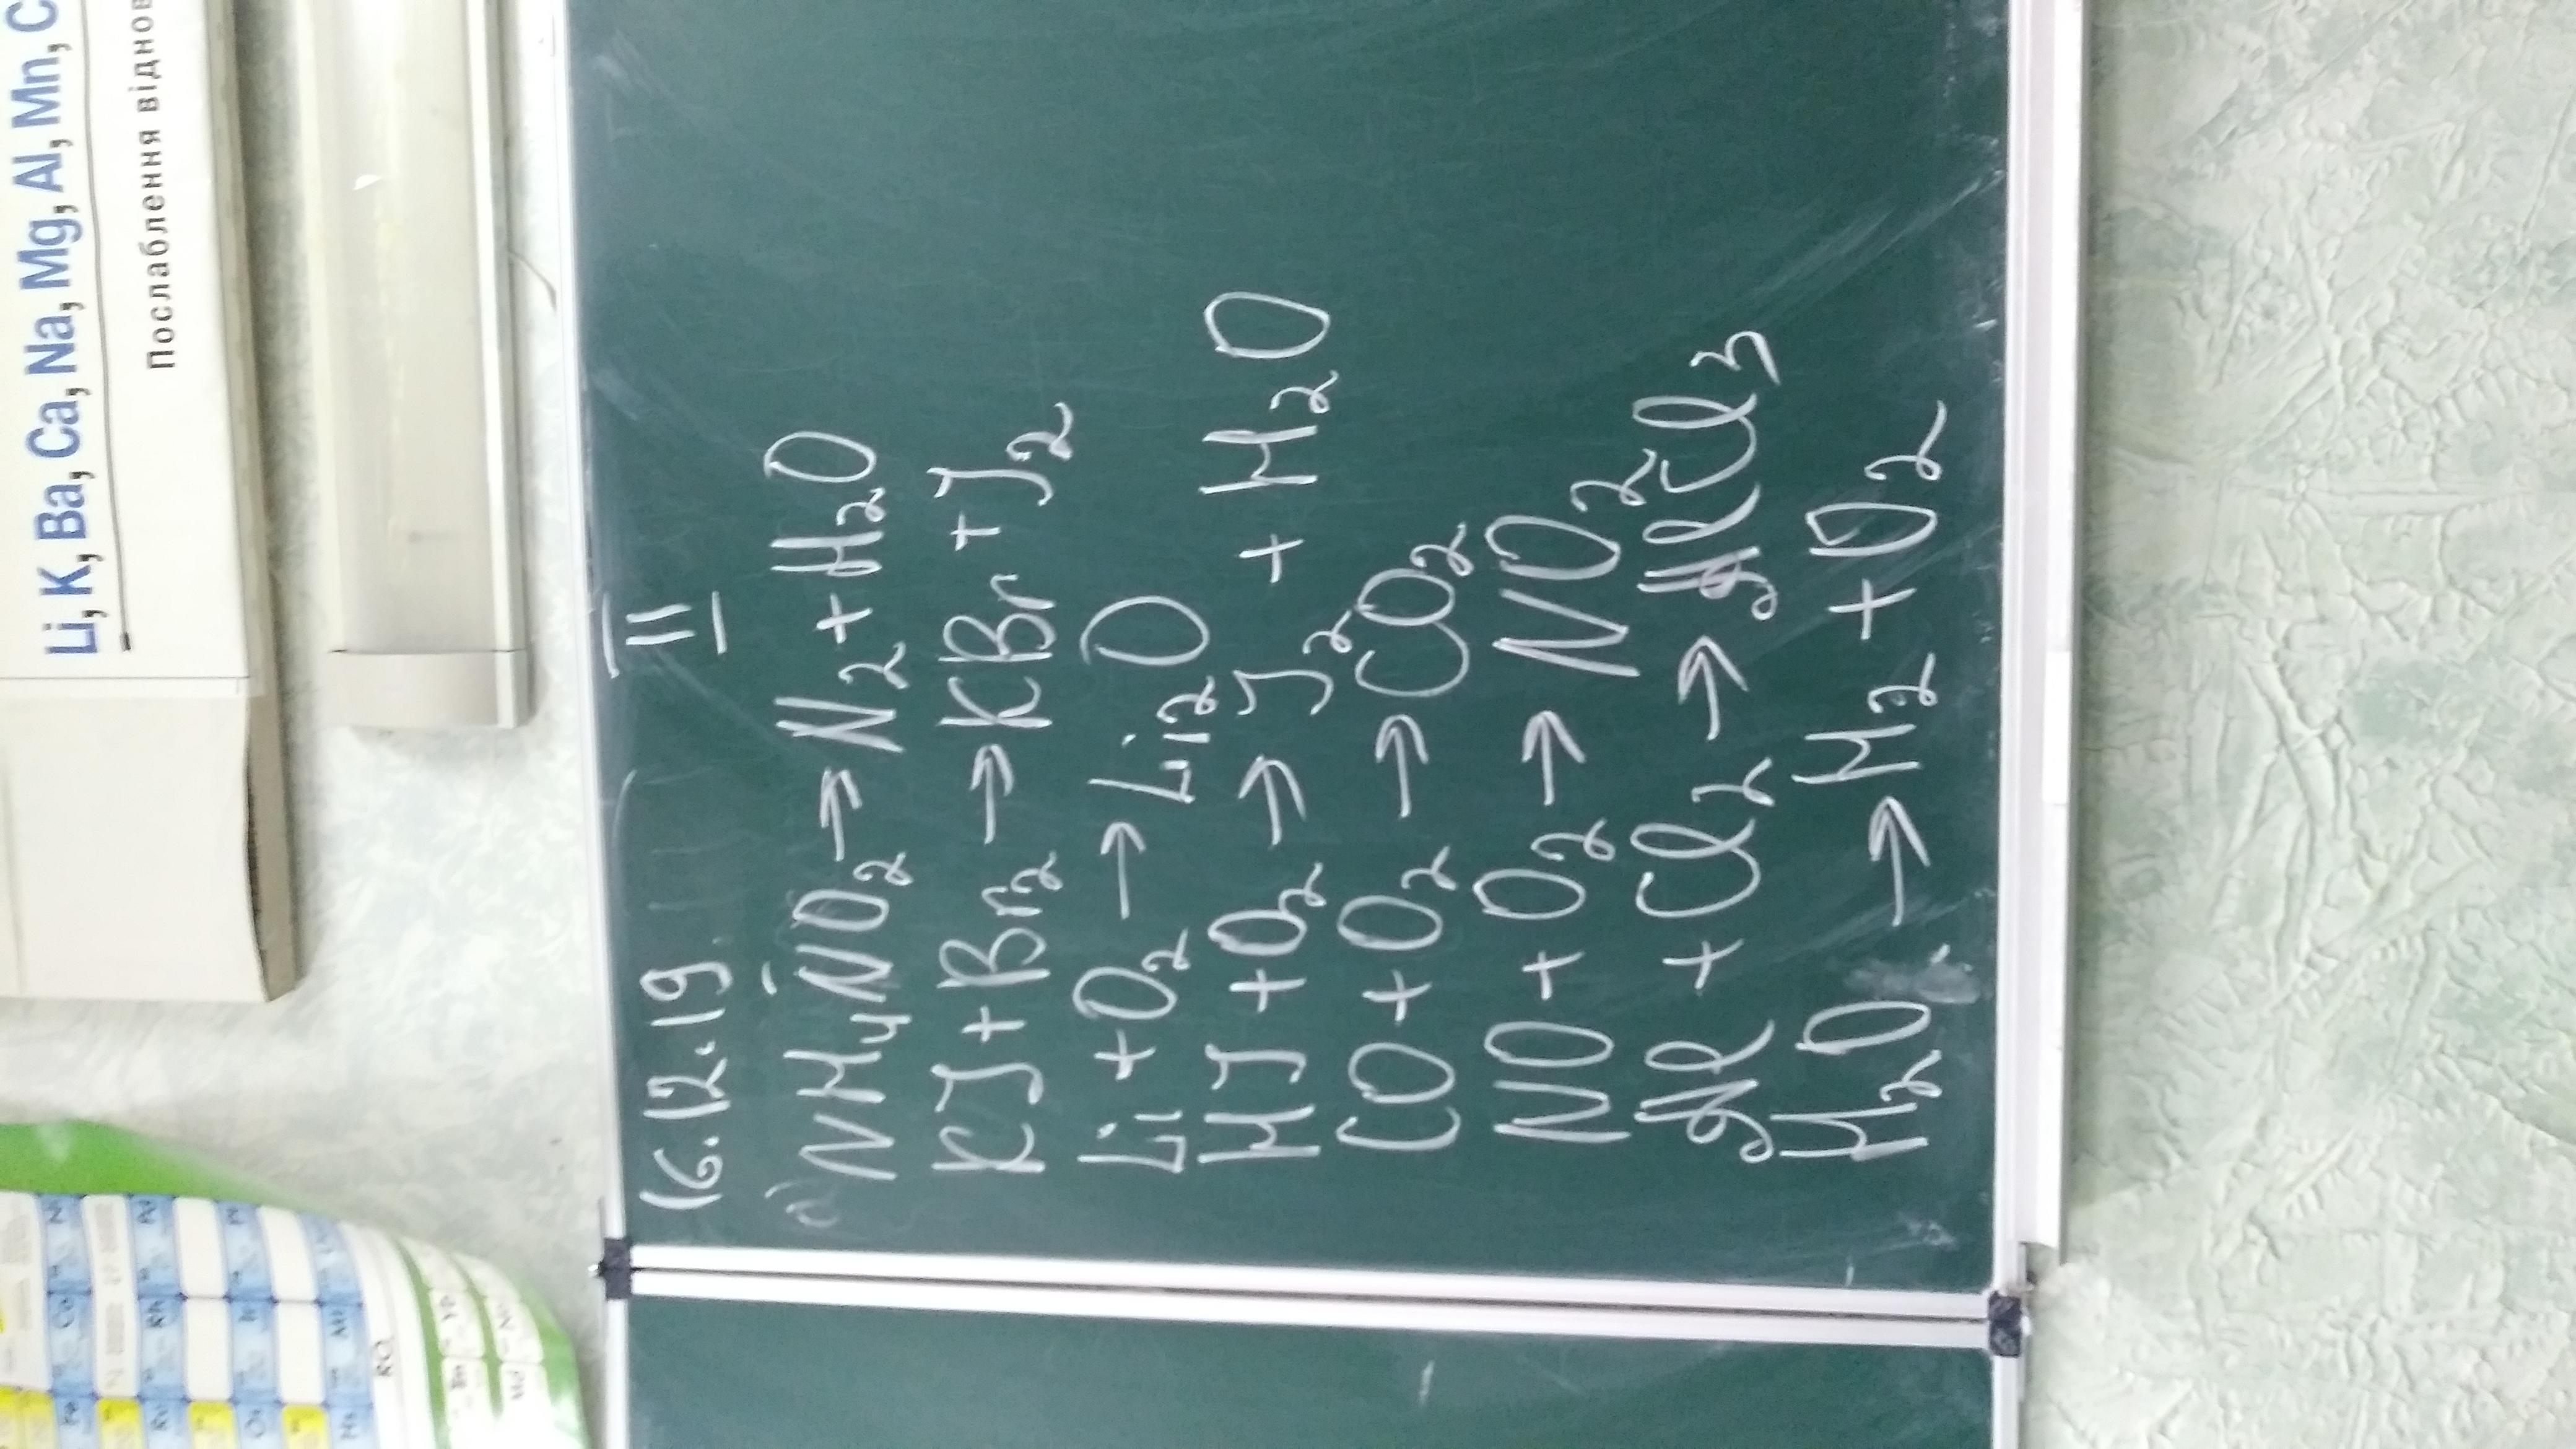 Li, K, Ba, Ca, Na, Mg, Al, Mn, C
Послаблення віднов
16.12.19. II
а) NH₄NO₂ → N₂ + H₂O
KJ + Br₂ → KBr + J₂
Li + O₂ → Li₂O
HJ + O₂ → J₂ + H₂O
CO + O₂ → CO₂
NO + O₂ → NO₂
Al + Cl₂ → AlCl₃
H₂O → H₂ + O₂
RO